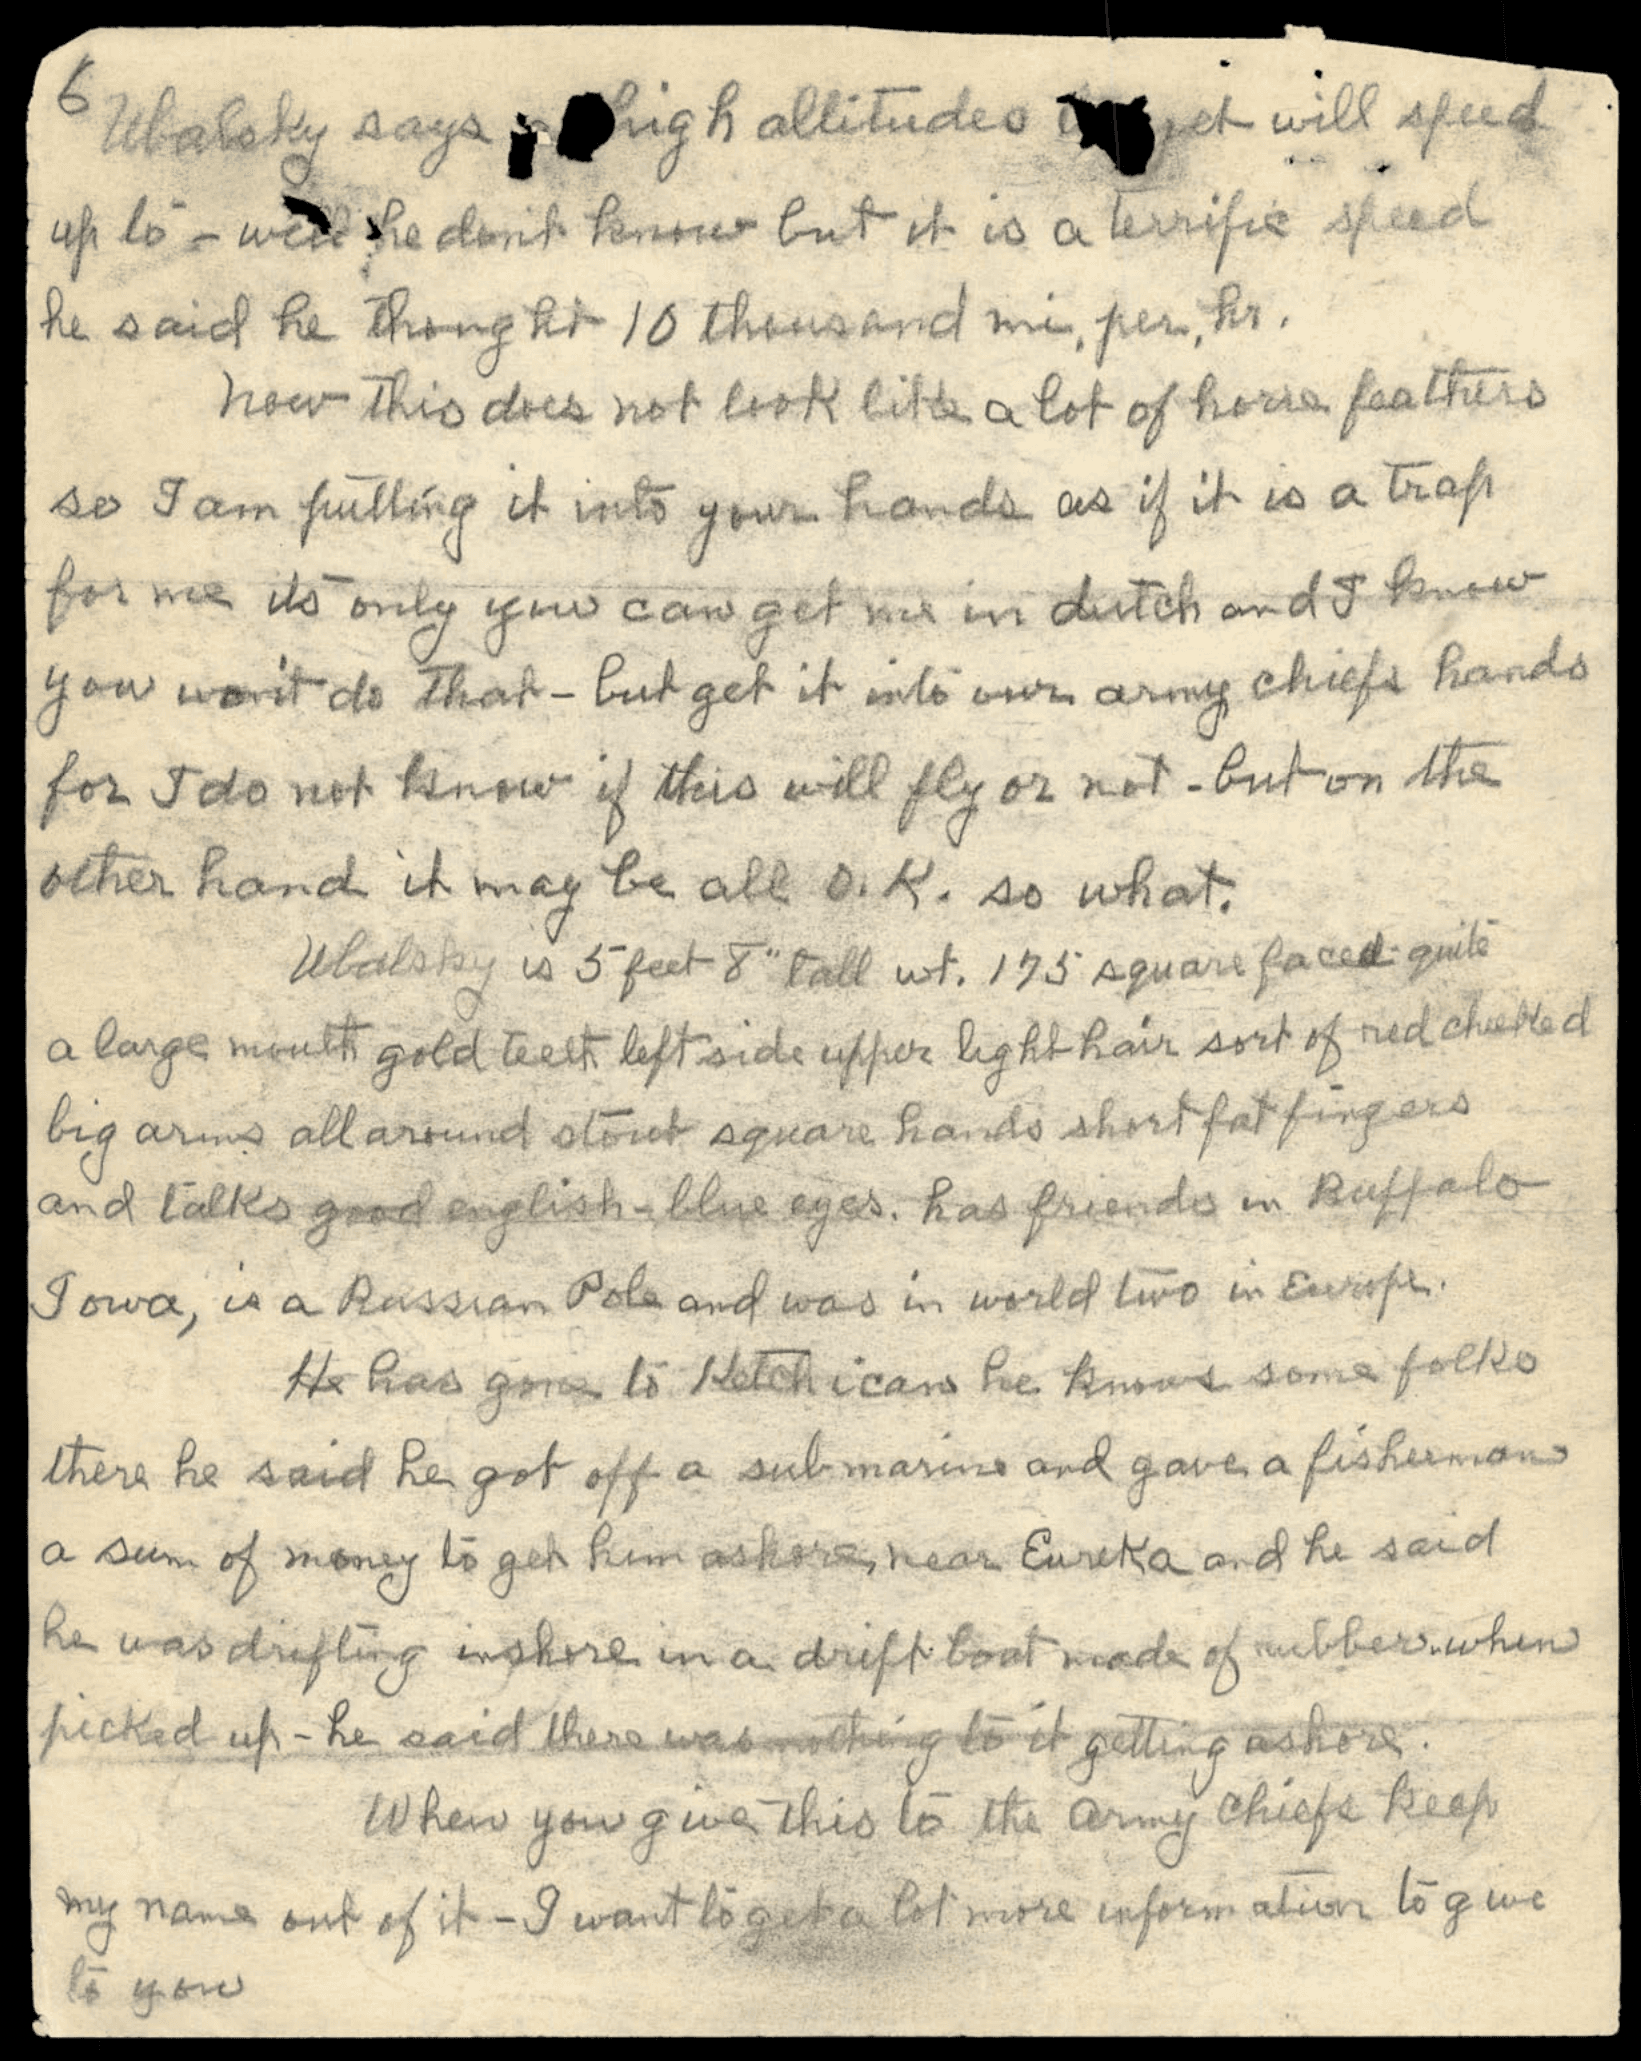 6
Ubalsky says high allitudes jet will speed
up to - well he dont know but it is a terrific speed
he said he thought 10 thousand mi, per, hr.
Now this does not look like a lot of horse feathers
so I am putting it into your hands as if it is a trap
for me its only you can get me in dutch and I know
you won't do that - but get it into our army chiefs hands
for I do not know if this will fly or not - but on the
other hand it may be all O.K. so what.
Ubalsky is 5 feet 8" tall wt. 175 square faced - quite
a large mouth gold teeth left side upper light hair sort of red cheeked
big arms all around stout square hands short fat fingers
and talks good english - blue eyes. has friends in Buffalo
Iowa, is a Russian Pole and was in world two in Europe.
He has gone to Ketchican he knows some folks
there he said he got off a submarine and gave a fisherman
a sum of money to get him ashore, near Eureka and he said
he was drifting inshore in a drift boat made of rubber. when
picked up - he said there was nothing to it getting ashore.
When you give this to the army chiefs keep
my name out of it - I want to get a lot more information to give
to you